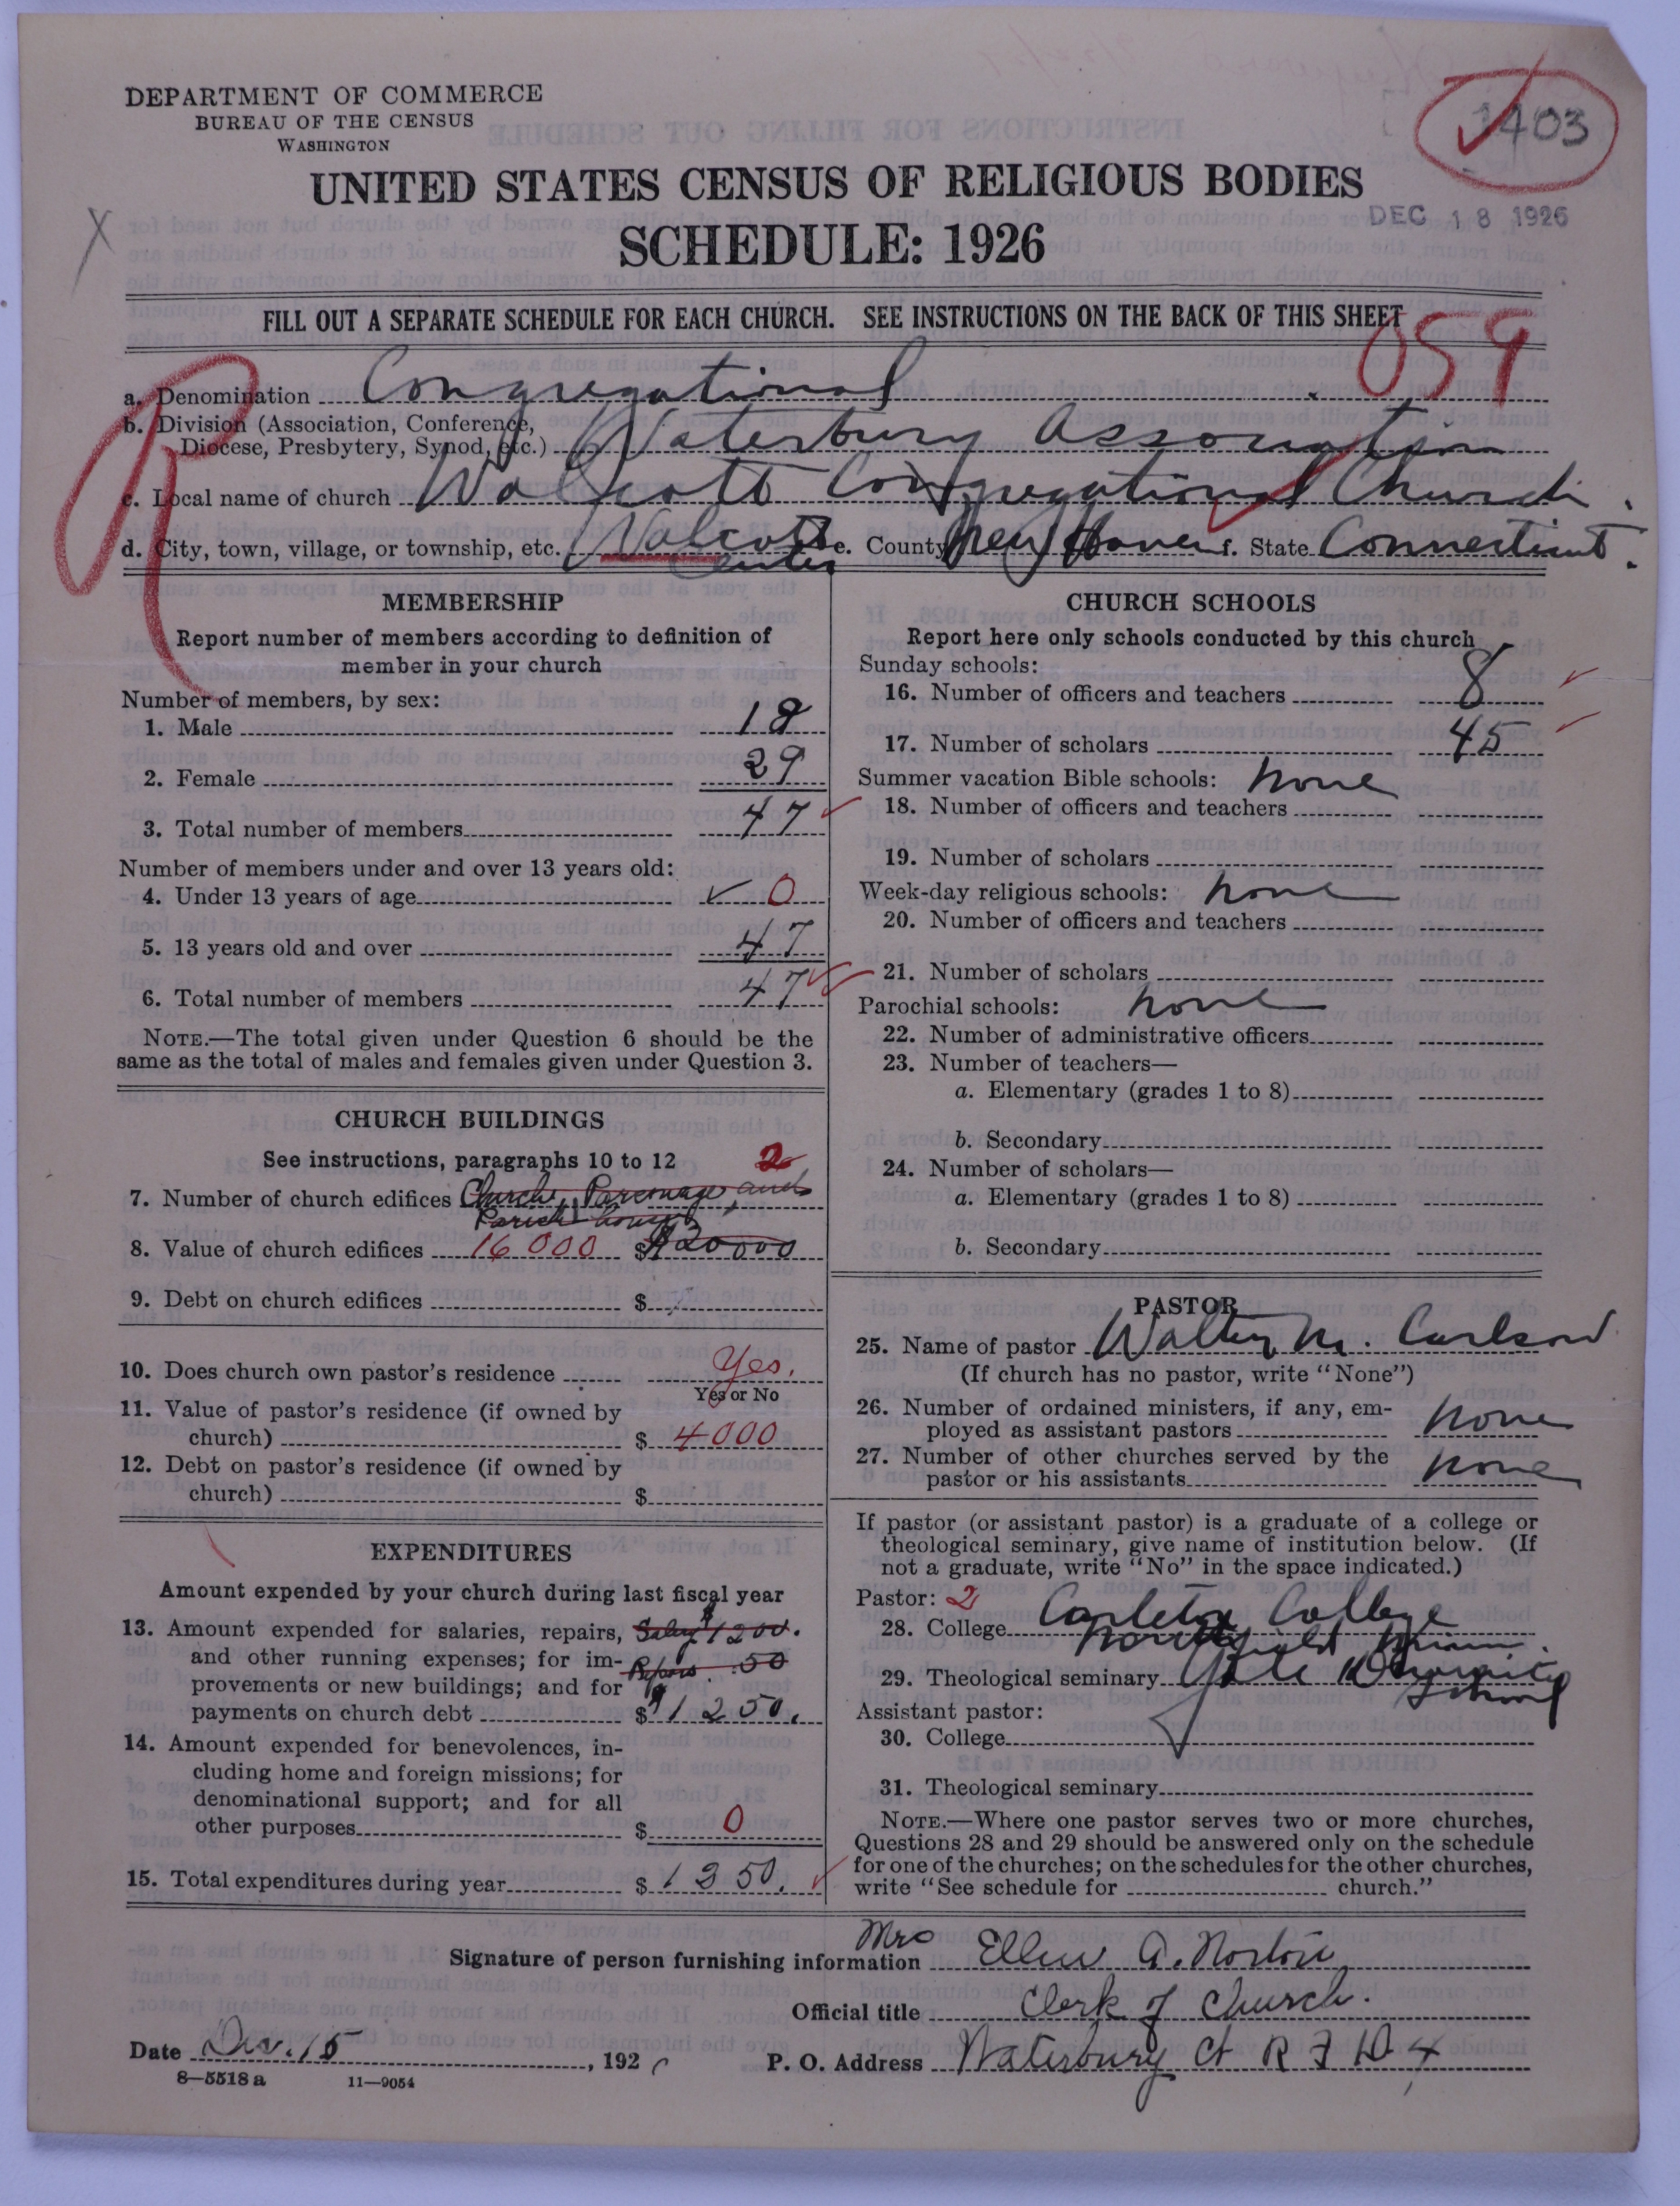 DEPARTMENT OF COMMERCE
BUREAU OF THE CENSUS
WASHINGTON
1403
UNITED STATES CENSUS OF RELIGIOUS BODIES
DEC 18 1926
SCHEDULE: 1926
X
FILL OUT A SEPARATE SCHEDULE FOR EACH CHURCH. SEE INSTRUCTIONS ON THE BACK OF THIS SHEET
059
R
a. Denomination Congregational
b. Division (Association, Conference,
Diocese, Presbytery, Synod, etc.) Waterbury Association
c. Local name of church Wolcott Congregational Church.
d. City, town, village, or township, etc. Wolcott e. County New Haven f. State Connecticut.
Center
MEMBERSHIP
Report number of members according to definition of
member in your church
Number of members, by sex:
1. Male 18
2. Female 29
3. Total number of members 47
Number of members under and over 13 years old:
4. Under 13 years of age 0
5. 13 years old and over 47
6. Total number of members 47
NOTE.—The total given under Question 6 should be the
same as the total of males and females given under Question 3.
CHURCH BUILDINGS
See instructions, paragraphs 10 to 12 2
7. Number of church edifices Church, Parsonage and
Parish house
8. Value of church edifices 16000 $ $20000
9. Debt on church edifices $
10. Does church own pastor's residence Yes.
Yes or No
11. Value of pastor's residence (if owned by
church) $ 4000
12. Debt on pastor's residence (if owned by
church) $
EXPENDITURES
Amount expended by your church during last fiscal year
13. Amount expended for salaries, repairs, Salary $1200.
and other running expenses; for im-
provements or new buildings; and for Repairs 50
payments on church debt $ $1250.
14. Amount expended for benevolences, in-
cluding home and foreign missions; for
denominational support; and for all
other purposes $ 0
15. Total expenditures during year $ 1250.
CHURCH SCHOOLS
Report here only schools conducted by this church
Sunday schools:
16. Number of officers and teachers 8
17. Number of scholars 45
Summer vacation Bible schools: none
18. Number of officers and teachers
19. Number of scholars
Week-day religious schools: none
20. Number of officers and teachers
21. Number of scholars
Parochial schools: none
22. Number of administrative officers
23. Number of teachers—
a. Elementary (grades 1 to 8)
b. Secondary
24. Number of scholars—
a. Elementary (grades 1 to 8)
b. Secondary
PASTOR
25. Name of pastor Walter M. Carlson
(If church has no pastor, write "None")
26. Number of ordained ministers, if any, em-
ployed as assistant pastors none
27. Number of other churches served by the
pastor or his assistants none
If pastor (or assistant pastor) is a graduate of a college or
theological seminary, give name of institution below. (If
not a graduate, write "No" in the space indicated.)
Pastor: 2
28. College Carleton College
Northfield Minn.
29. Theological seminary Yale Divinity
School
Assistant pastor:
30. College
31. Theological seminary
NOTE.—Where one pastor serves two or more churches,
Questions 28 and 29 should be answered only on the schedule
for one of the churches; on the schedules for the other churches,
write "See schedule for church."
Signature of person furnishing information Mrs Ellen A. Norton
Official title Clerk of Church.
Date Dec. 15, 192 P. O. Address Waterbury Ct R F D 4
8—5518 a 11—9054